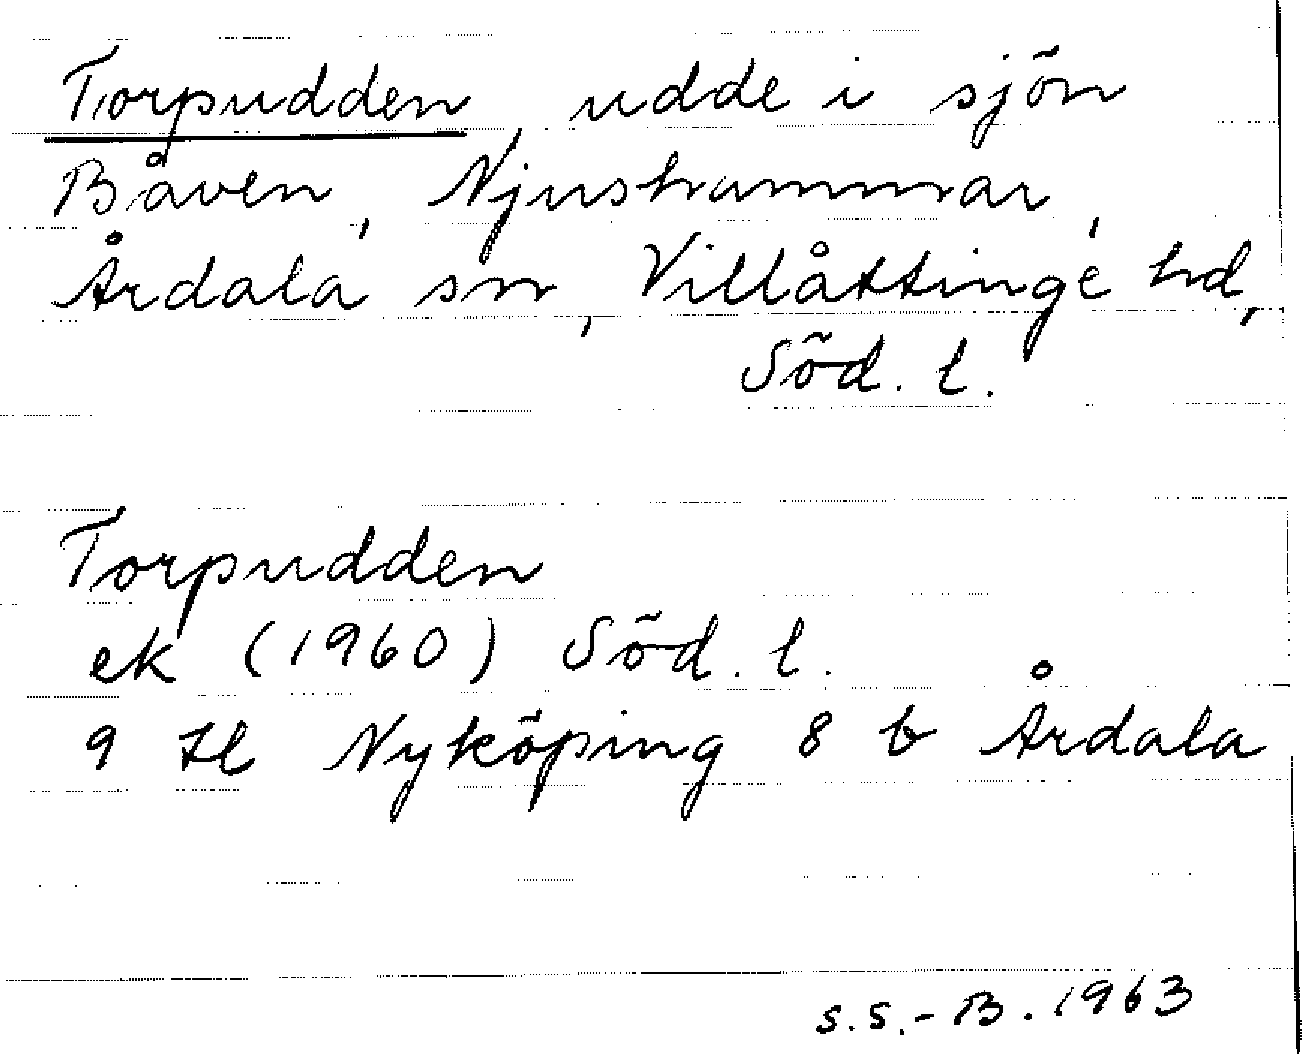 Torpudden, udde i sjön
Båven, Njushammar,
Årdala sn, Villåttinge hd,
Söd. l.
Torpudden
ek (1960) Söd. l.
9 H Nyköping 8 b Årdala
S.S.-B. 1963